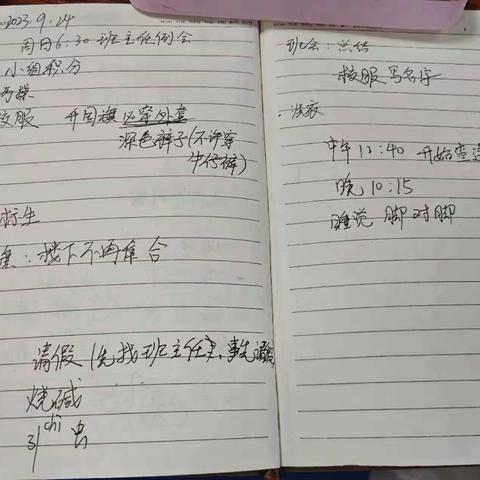 2023.9.24
周日6:30 班主任例会
小组积分
校服 升国旗必穿外套
深色裤子(不许穿
牛仔裤)
楼下不再集合
请假(先找班主任,事先
烧碱
chi
引 虫
班会:总结
校服写名字
洗衣
中午12:40 开始查
晚10:15
睡觉 脚对脚